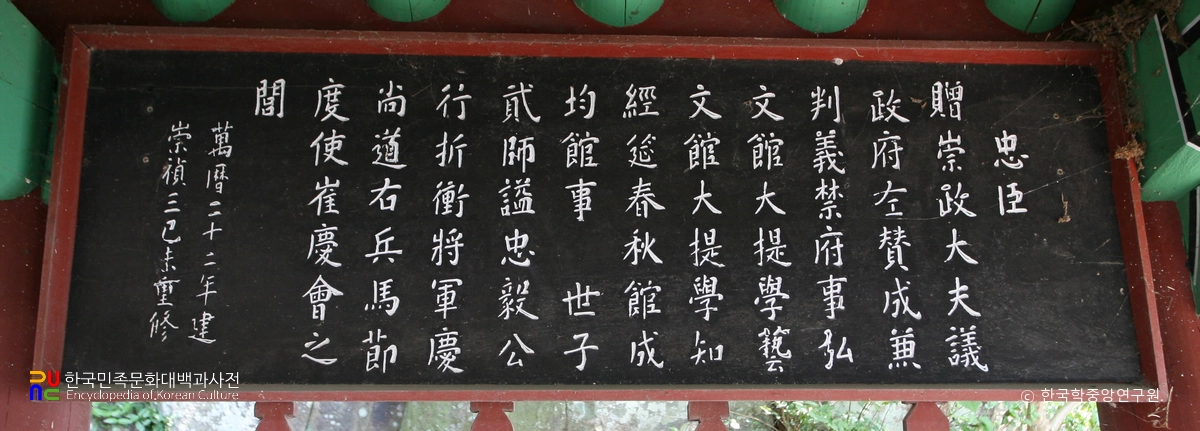 忠臣
贈崇政大夫議
政府左賛成兼
判義禁府事弘
文館大提學藝
文館大提學知
經筵春秋館成
均館事 世子
貳師謚忠毅公
行折衝將軍慶
尚道右兵馬節
度使崔慶會之
閭
萬曆二十二年建
崇禎三己未重修
한국민족문화대백과사전
Encyclopedia of Korean Culture
ⓒ 한국학중앙연구원